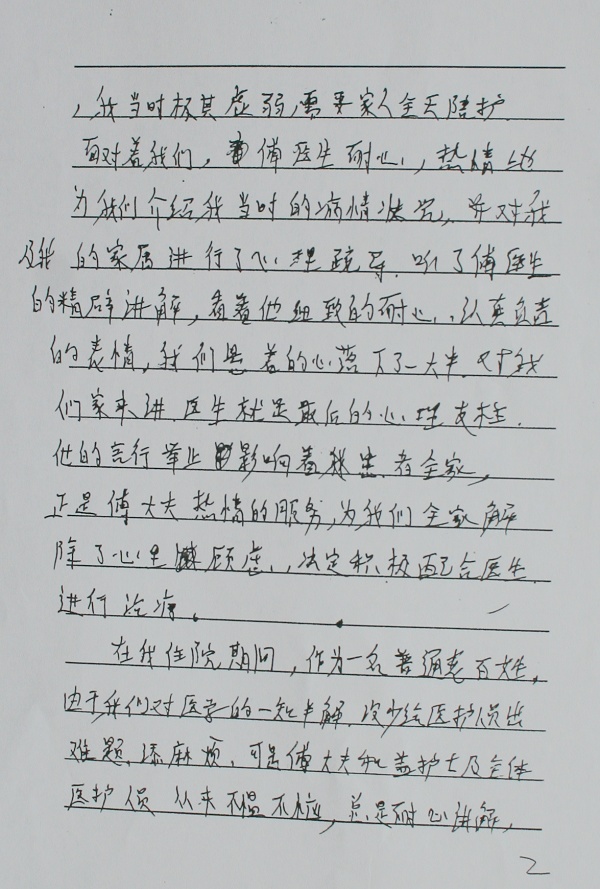 ，我当时极其虚弱，需要家人全天陪护.
面对着我们，傅医生耐心，热情地
为我们介绍我当时的病情状况，并对我
及我的家属进行了心理疏导.听了傅医生
的精辟讲解，看着他细致的耐心、认真负责
的表情，我们悬着的心落下了一大半.对我
们家来讲.医生就是最后的心理支柱.
他的言行举止影响着我患者全家，
正是傅大夫热情的服务，为我们全家解
除了心里顾虑、决定积极配合医生.
进行治病。
在我住院期间，作为一名普通老百姓，
由于我们对医学的一知半解.没少给医护人员出
难题.添麻烦.可是傅大夫和盖护士及全体
医护人员从来不愠不恼，总是耐心讲解，
2